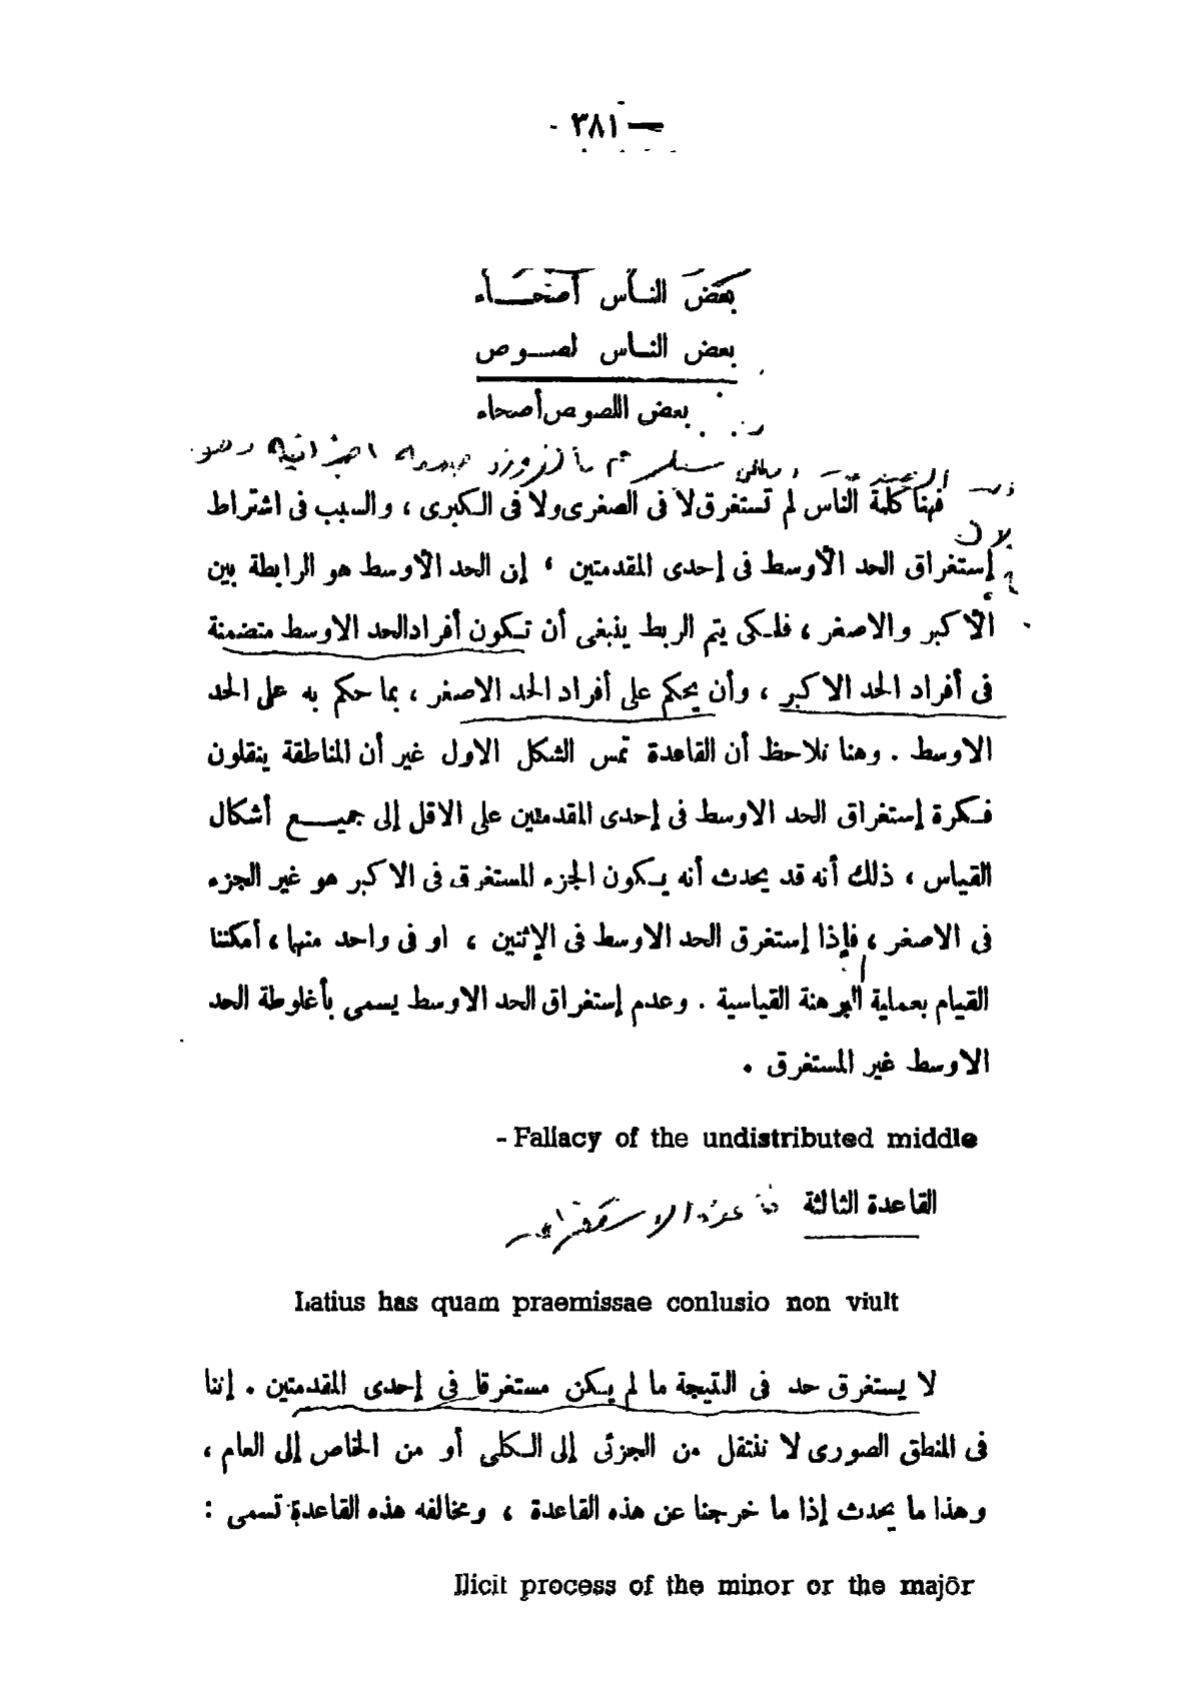 - ٣٨١ —
بعض النــاس أصحــــاء
بعض النــاس لصــوص
بعض اللصوص أصحاء
فهنا كلمة الناس لم تستغرق لا فى الصغرى ولا فى الكبرى ، والسبب فى اشتراط
إستغراق الحد الأوسط فى إحدى المقدمتين ، إن الحد الأوسط هو الرابطة بين
الأكبر والاصغر ، فلكى يتم الربط ينبغى أن تكون أفراد الحد الاوسط متضمنة
فى أفراد الحد الاكبر ، وأن يحكم على أفراد الحد الاصغر ، بما حكم به على الحد
الاوسط . وهنا نلاحظ أن القاعدة تمس الشكل الاول غير أن المناطقة ينقلون
فكرة إستغراق الحد الاوسط فى إحدى المقدمتين على الاقل إلى جميـــع أشكال
القياس ، ذلك أنه قد يحدث أنه يكون الجزء المستغرق فى الاكبر هو غير الجزء
فى الاصغر ، فإذا إستغرق الحد الاوسط فى الإثنين ، او فى واحد منها ، أمكننا
القيام بعملية البرهنة القياسية . وعدم إستغراق الحد الاوسط يسمى بأغلوطة الحد
الاوسط غير المستغرق .
- Fallacy of the undistributed middle
القاعدة الثالثة قاعدة الاستغراق
Latius has quam praemissae conlusio non viult
لا يستغرق حد فى النتيجة ما لم يكن مستغرقا فى إحدى المقدمتين . إننا
فى المنطق الصورى لا ننتقل من الجزئى إلى الكلى أو من الخاص إلى العام ،
وهذا ما يحدث إذا ما خرجنا عن هذه القاعدة ، ومخالفه هذه القاعدة تسمى :
Ilicit process of the minor or the majôr